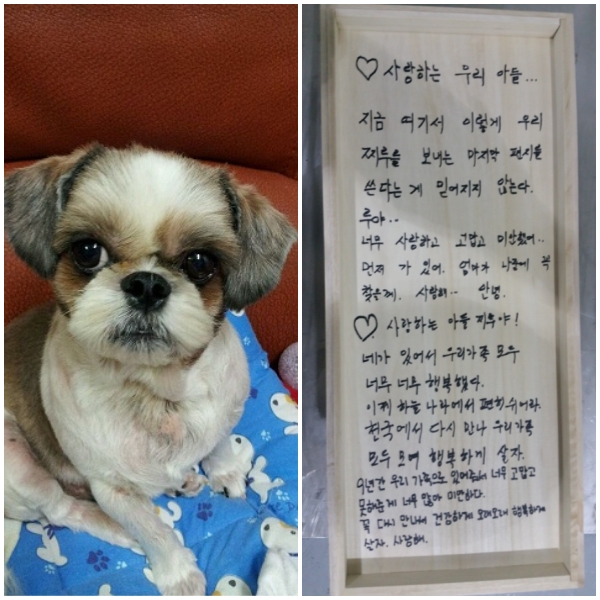 ♡ 사랑하는 우리 아들...
지금 여기서 이렇게 우리
찌루를 보내는 마지막 편지를
쓴다는 게 믿어지지 않는다.
루야..
너무 사랑하고 고맙고 미안했어..
먼저 가 있어. 엄마가 나중에 꼭
찾을게. 사랑해.. 안녕.
♡ 사랑하는 아들 찌루야!
네가 있어서 우리가족 모두
너무 너무 행복했다.
이제 하늘 나라에서 편히 쉬어라.
천국에서 다시 만나 우리가족
모두 모여 행복하게 살자.
9년간 우리 가족으로 있어줘서 너무 고맙고
못해준게 너무 많아 미안하다.
꼭 다시 만나서 건강하게 오래오래 행복하게
살자. 사랑해.